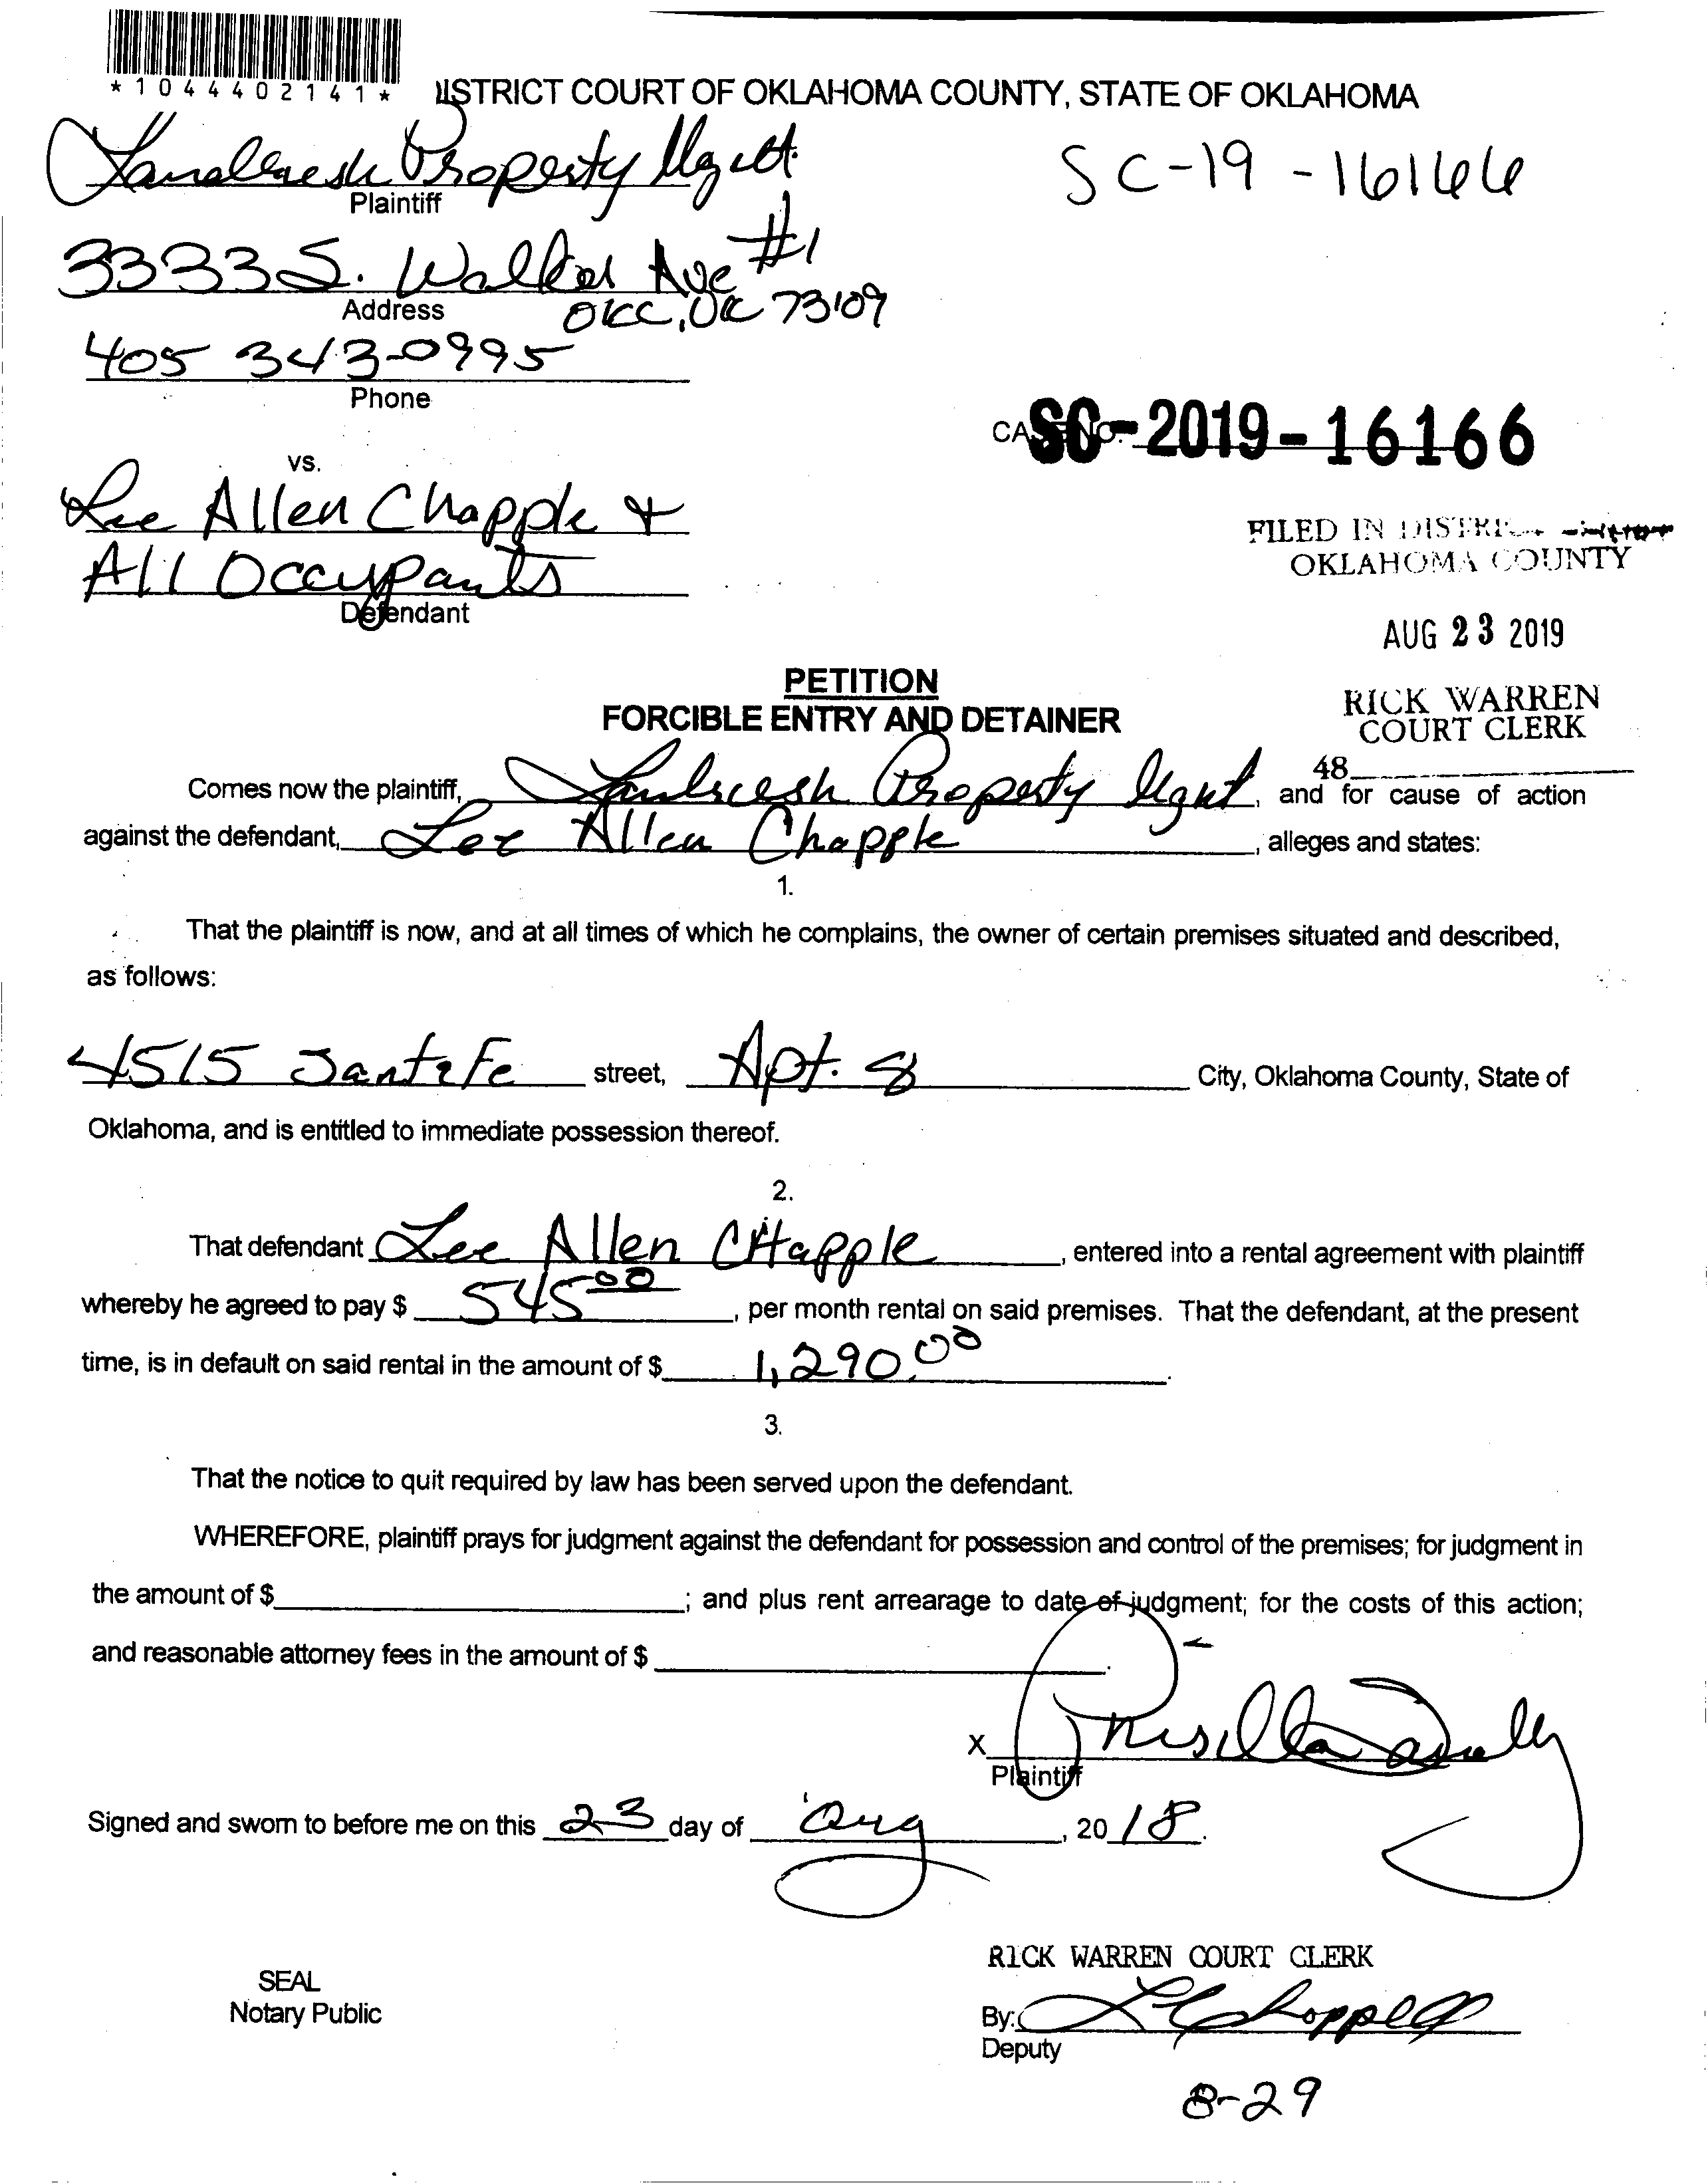 *1044402141*
DISTRICT COURT OF OKLAHOMA COUNTY, STATE OF OKLAHOMA
Property Mgmt.
Plaintiff
SC-19-16166
3333 S. Walker Ave #1
Address
OKC, OK 73109
405 343-0995
Phone
CASE NO. SC-2019-16166
vs.
Lee Allen Chapple &
All Occupants
Defendant
FILED IN DISTRICT
OKLAHOMA COUNTY
AUG 23 2019
RICK WARREN
COURT CLERK
48
PETITION
FORCIBLE ENTRY AND DETAINER
Comes now the plaintiff, Property Mgmt, and for cause of action
against the defendant, Lee Allen Chapple, alleges and states:
1.
That the plaintiff is now, and at all times of which he complains, the owner of certain premises situated and described,
as follows:
4515 Santa Fe street, Apt. 8 City, Oklahoma County, State of
Oklahoma, and is entitled to immediate possession thereof.
2.
That defendant Lee Allen CHapple, entered into a rental agreement with plaintiff
whereby he agreed to pay $ 545 00, per month rental on said premises. That the defendant, at the present
time, is in default on said rental in the amount of $ 1,290.00.
3.
That the notice to quit required by law has been served upon the defendant.
WHEREFORE, plaintiff prays for judgment against the defendant for possession and control of the premises; for judgment in
the amount of $ ; and plus rent arrearage to date of judgment; for the costs of this action;
and reasonable attorney fees in the amount of $ .
X Priscilla
Plaintiff
Signed and sworn to before me on this 23 day of Aug, 2018.
RICK WARREN COURT CLERK
SEAL
Notary Public
By:
Deputy
8-29